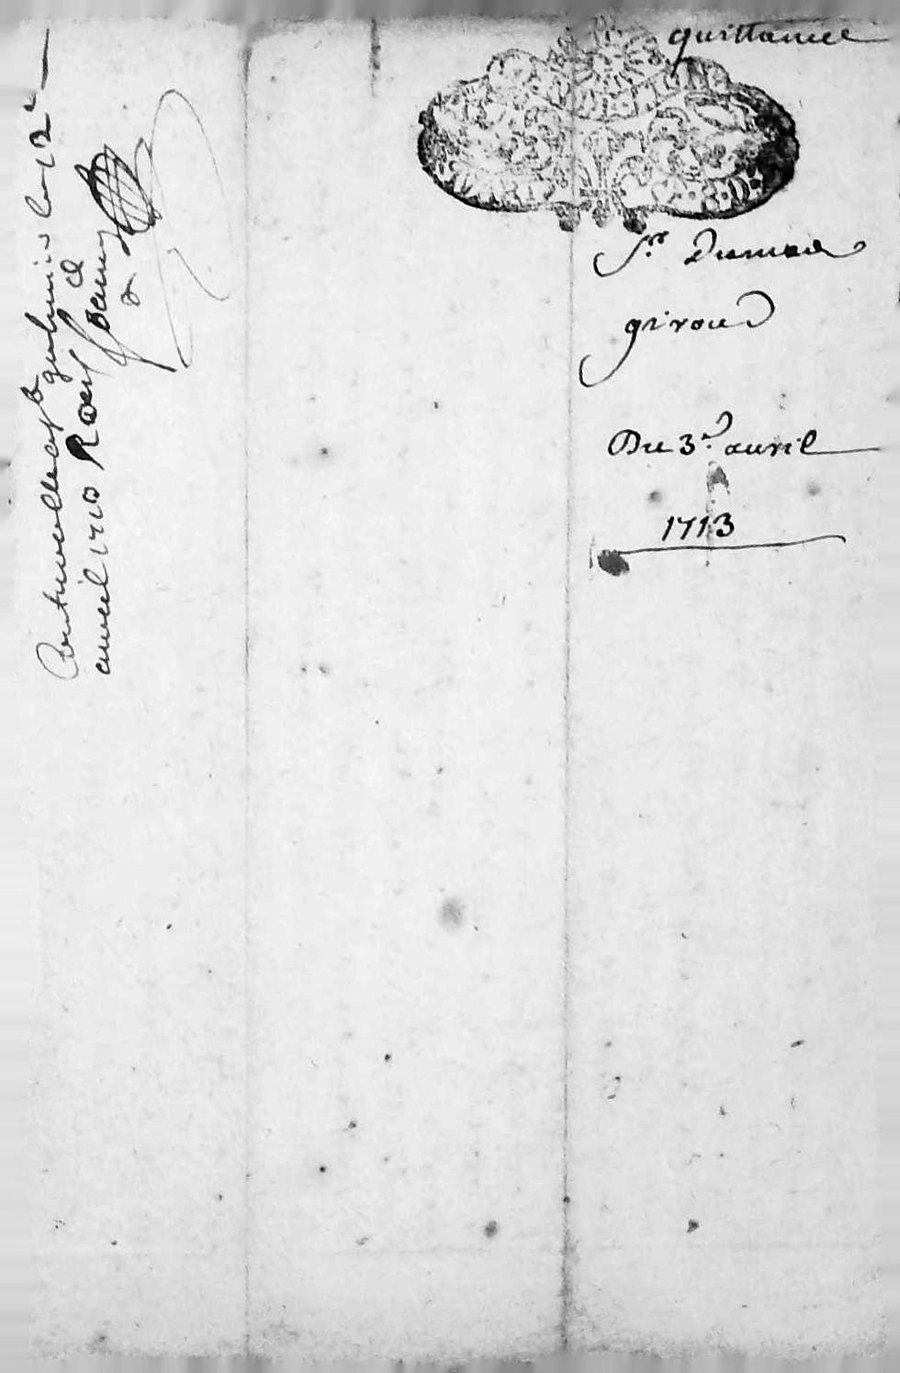 quittance
Sr. Dumas
giroud
Du 3e. auril
1713
Controllé a
le 12e
auril 1713 Reçu